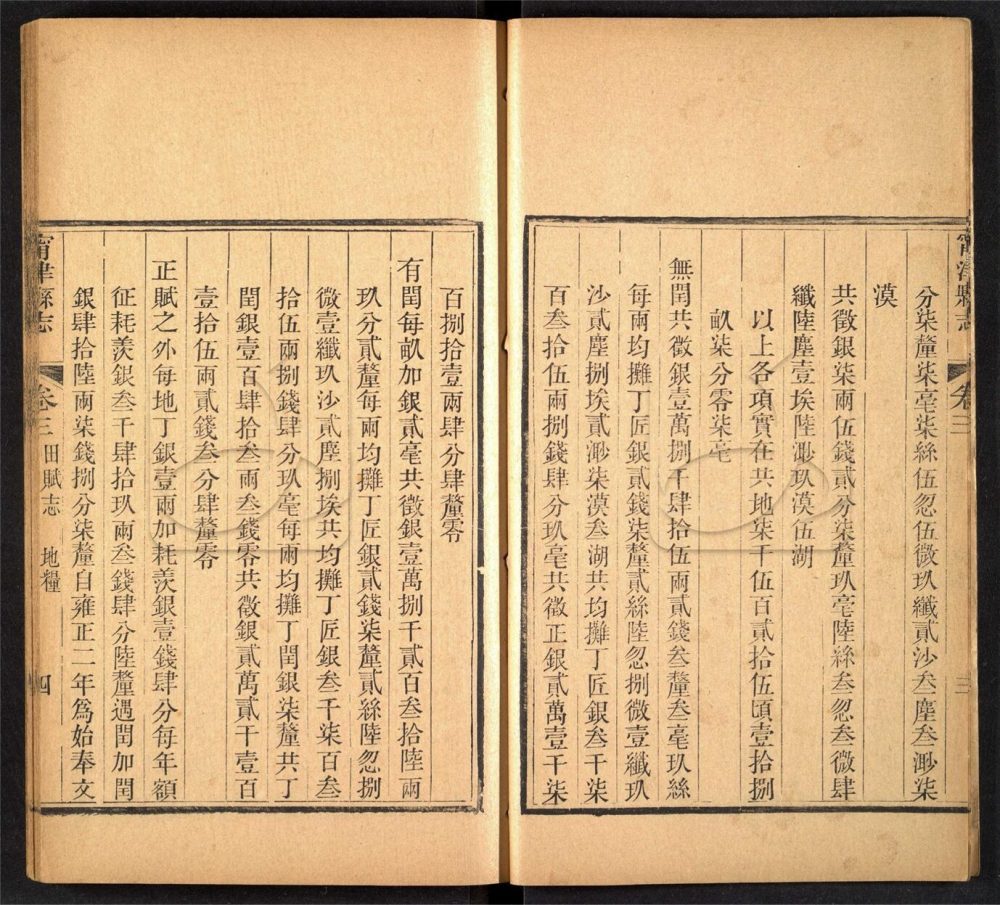 甯津縣志
卷三
三
分柒釐柒毫柒絲伍忽伍微玖纖貳沙叁塵叁渺柒
漠
共徵銀柒兩伍錢貳分柒釐玖毫陸絲叁忽叁微肆
纖陸塵壹埃陸渺玖漠伍湖
以上各項實在共地柒千伍百貳拾伍頃壹拾捌
畝柒分零柒毫
無閏共徵銀壹萬捌千肆拾伍兩貳錢叁釐叁毫玖絲
每兩均攤丁匠銀貳錢柒釐貳絲陸忽捌微壹纖玖
沙貳塵捌埃貳渺柒漠叁湖共均攤丁匠銀叁千柒
百叁拾伍兩捌錢肆分玖毫共徵正銀貳萬壹千柒
百捌拾壹兩肆分肆釐零
有閏每畝加銀貳毫共徵銀壹萬捌千貳百叁拾陸兩
玖分貳釐每兩均攤丁匠銀貳錢柒釐貳絲陸忽捌
微壹纖玖沙貳塵捌埃共均攤丁匠銀叁千柒百叁
拾伍兩捌錢肆分玖毫每兩均攤丁閏銀柒釐共丁
閏銀壹百肆拾叁兩叁錢零共徵銀貳萬貳千壹百
壹拾伍兩貳錢叁分肆釐零
正賦之外每地丁銀壹兩加耗羨銀壹錢肆分每年額
征耗羨銀叁千肆拾玖兩叁錢肆分陸釐遇閏加閏
銀肆拾陸兩柒錢捌分柒釐自雍正二年爲始奉文
甯津縣志
卷三
田賦志
地糧
四